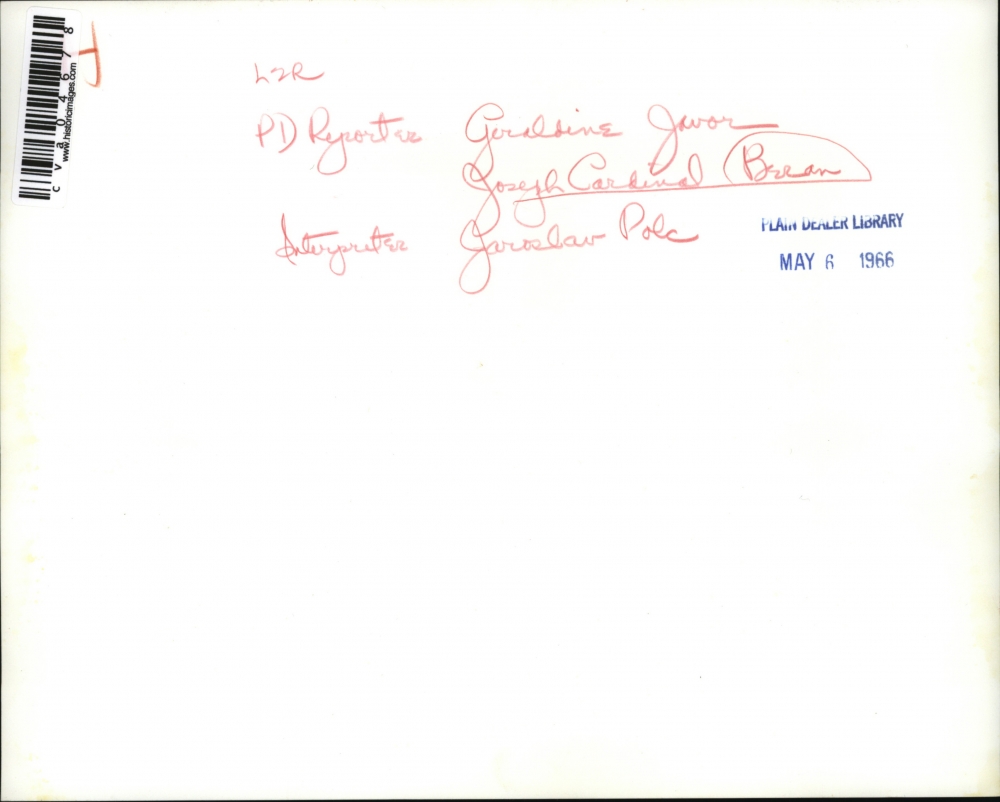 cva04678
www.historicimages.com
L2R
PD Reporter Geraldine Javor
Joseph Cardinal Beran
Interpreter Jaroslav Polc
PLAIN DEALER LIBRARY
MAY 6 1966